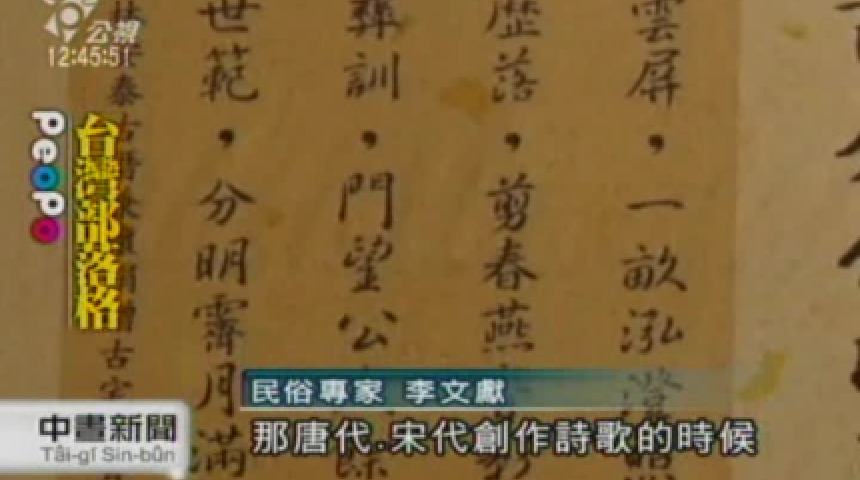 公視
12:45:51
PeoPo
台灣部落格
雲屏，一畝泓澄
歷落，剪春燕
彝訓，門望公
世範，分明霽月滿
泰古
民俗專家 李文獻
那唐代.宋代創作詩歌的時候
中晝新聞
Tâi-gí Sin-bûn